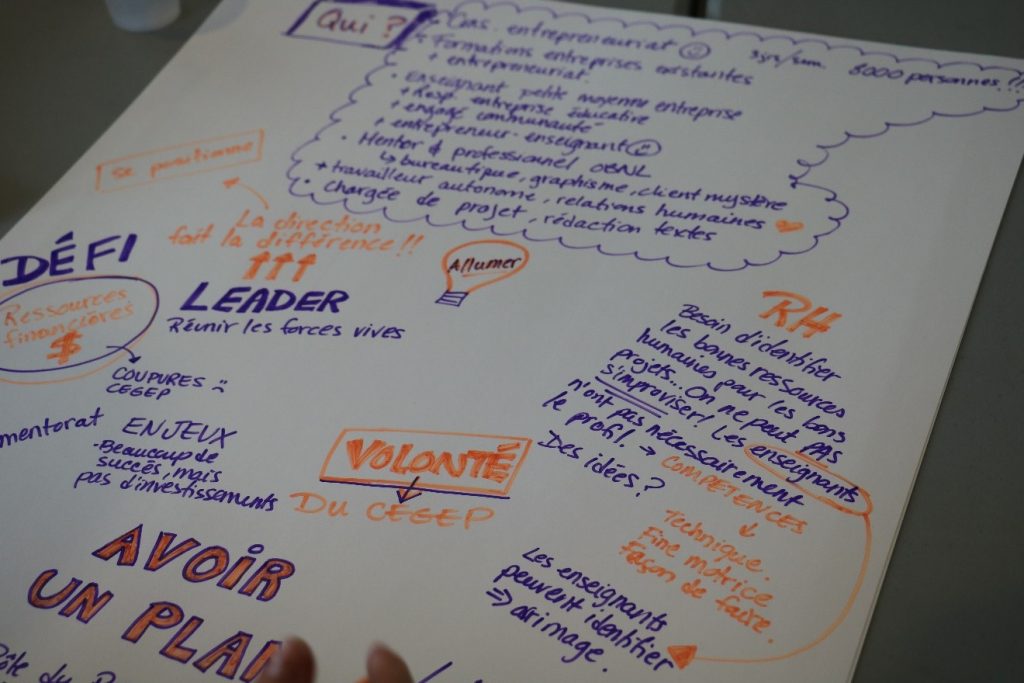 Qui ?
Cons. entrepreneuriat
• Formations entreprises existantes
+ entrepreneuriat.
8000 personnes !!!
• Enseignant petite moyenne entreprise
+ Resp. entreprise éducative
+ engagé communauté
+ entrepreneur-enseignant
• Mentor & professionnel OBNL
↳ bureautique, graphisme, client mystère
+ travailleur autonome, relations humaines
• chargée de projet, rédaction textes
se positionne
La direction
fait la différence !!
↑↑↑
LEADER
Réunir les forces vives
Allumer
DÉFI
Ressources
financières
$
COUPURES
CEGEP
mentorat
ENJEUX
- Beaucoup de
succès, mais
pas d'investissements
VOLONTÉ
DU CÉGEP
AVOIR
UN PLAN
RH
Besoin d'identifier
les bonnes ressources
humaines pour les bons
projets... On ne peut PAS
s'improviser! Les enseignants
n'ont pas nécessairement
le profil → COMPÉTENCES
Des idées?
Technique.
Fine motrice
Façon de faire.
Les enseignants
peuvent identifier
⇒ arrimage.